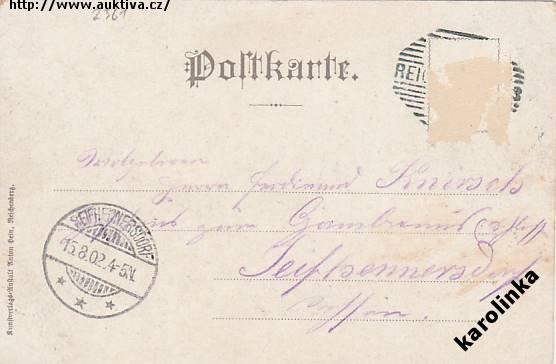 http://www.auktiva.cz/
2361
Postkarte.
REIC
Wolgeboren
Herrn Ferdinand Knirsch
zum Gambrinus
Seifhennersdorf
Sachsen.
SEIFHENNERSDORF
15.8.02.4-5N.
Kunstverlagsanstalt Anton Hein, Reichenberg.
karolinka